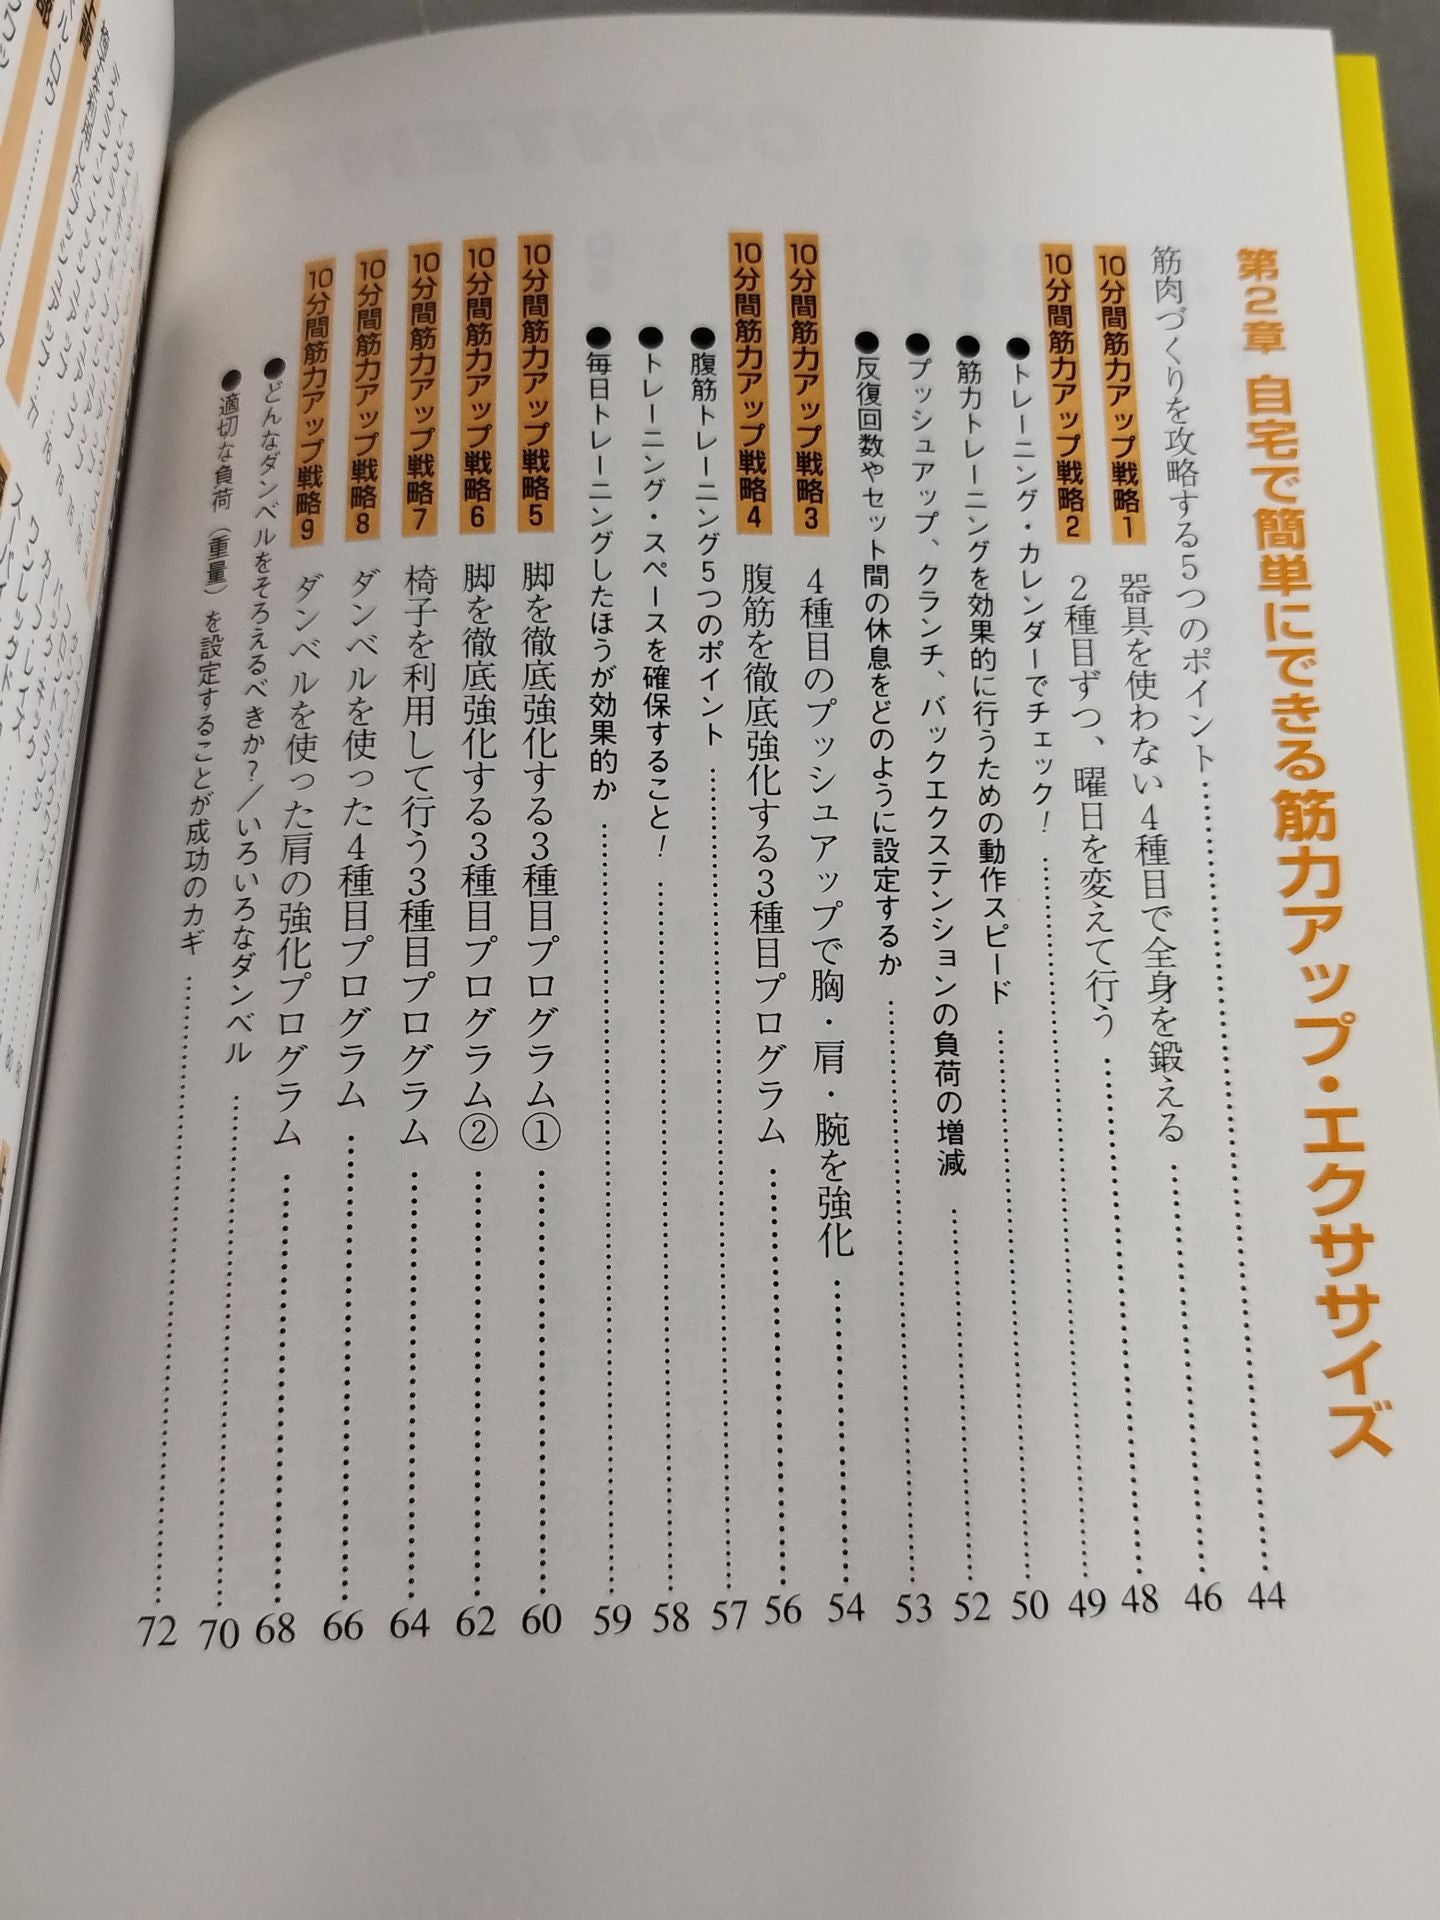 第2章 自宅で簡単にできる筋力アップ・エクササイズ
筋肉づくりを攻略する5つのポイント……44
10分間筋力アップ戦略1 器具を使わない4種目で全身を鍛える……46
10分間筋力アップ戦略2 2種目ずつ、曜日を変えて行う……48
●トレーニング・カレンダーでチェック!……49
●筋力トレーニングを効果的に行うための動作スピード……50
●プッシュアップ、クランチ、バックエクステンションの負荷の増減……52
●反復回数やセット間の休息をどのように設定するか……53
10分間筋力アップ戦略3 4種目のプッシュアップで胸・肩・腕を強化……54
10分間筋力アップ戦略4 腹筋を徹底強化する3種目プログラム……56
●腹筋トレーニング5つのポイント……57
●トレーニング・スペースを確保すること!……58
●毎日トレーニングしたほうが効果的か……59
10分間筋力アップ戦略5 脚を徹底強化する3種目プログラム①……60
10分間筋力アップ戦略6 脚を徹底強化する3種目プログラム②……62
10分間筋力アップ戦略7 椅子を利用して行う3種目プログラム……64
10分間筋力アップ戦略8 ダンベルを使った4種目プログラム……66
10分間筋力アップ戦略9 ダンベルを使った肩の強化プログラム……68
●どんなダンベルをそろえるべきか?/いろいろなダンベル……70
●適切な負荷（重量）を設定することが成功のカギ……72